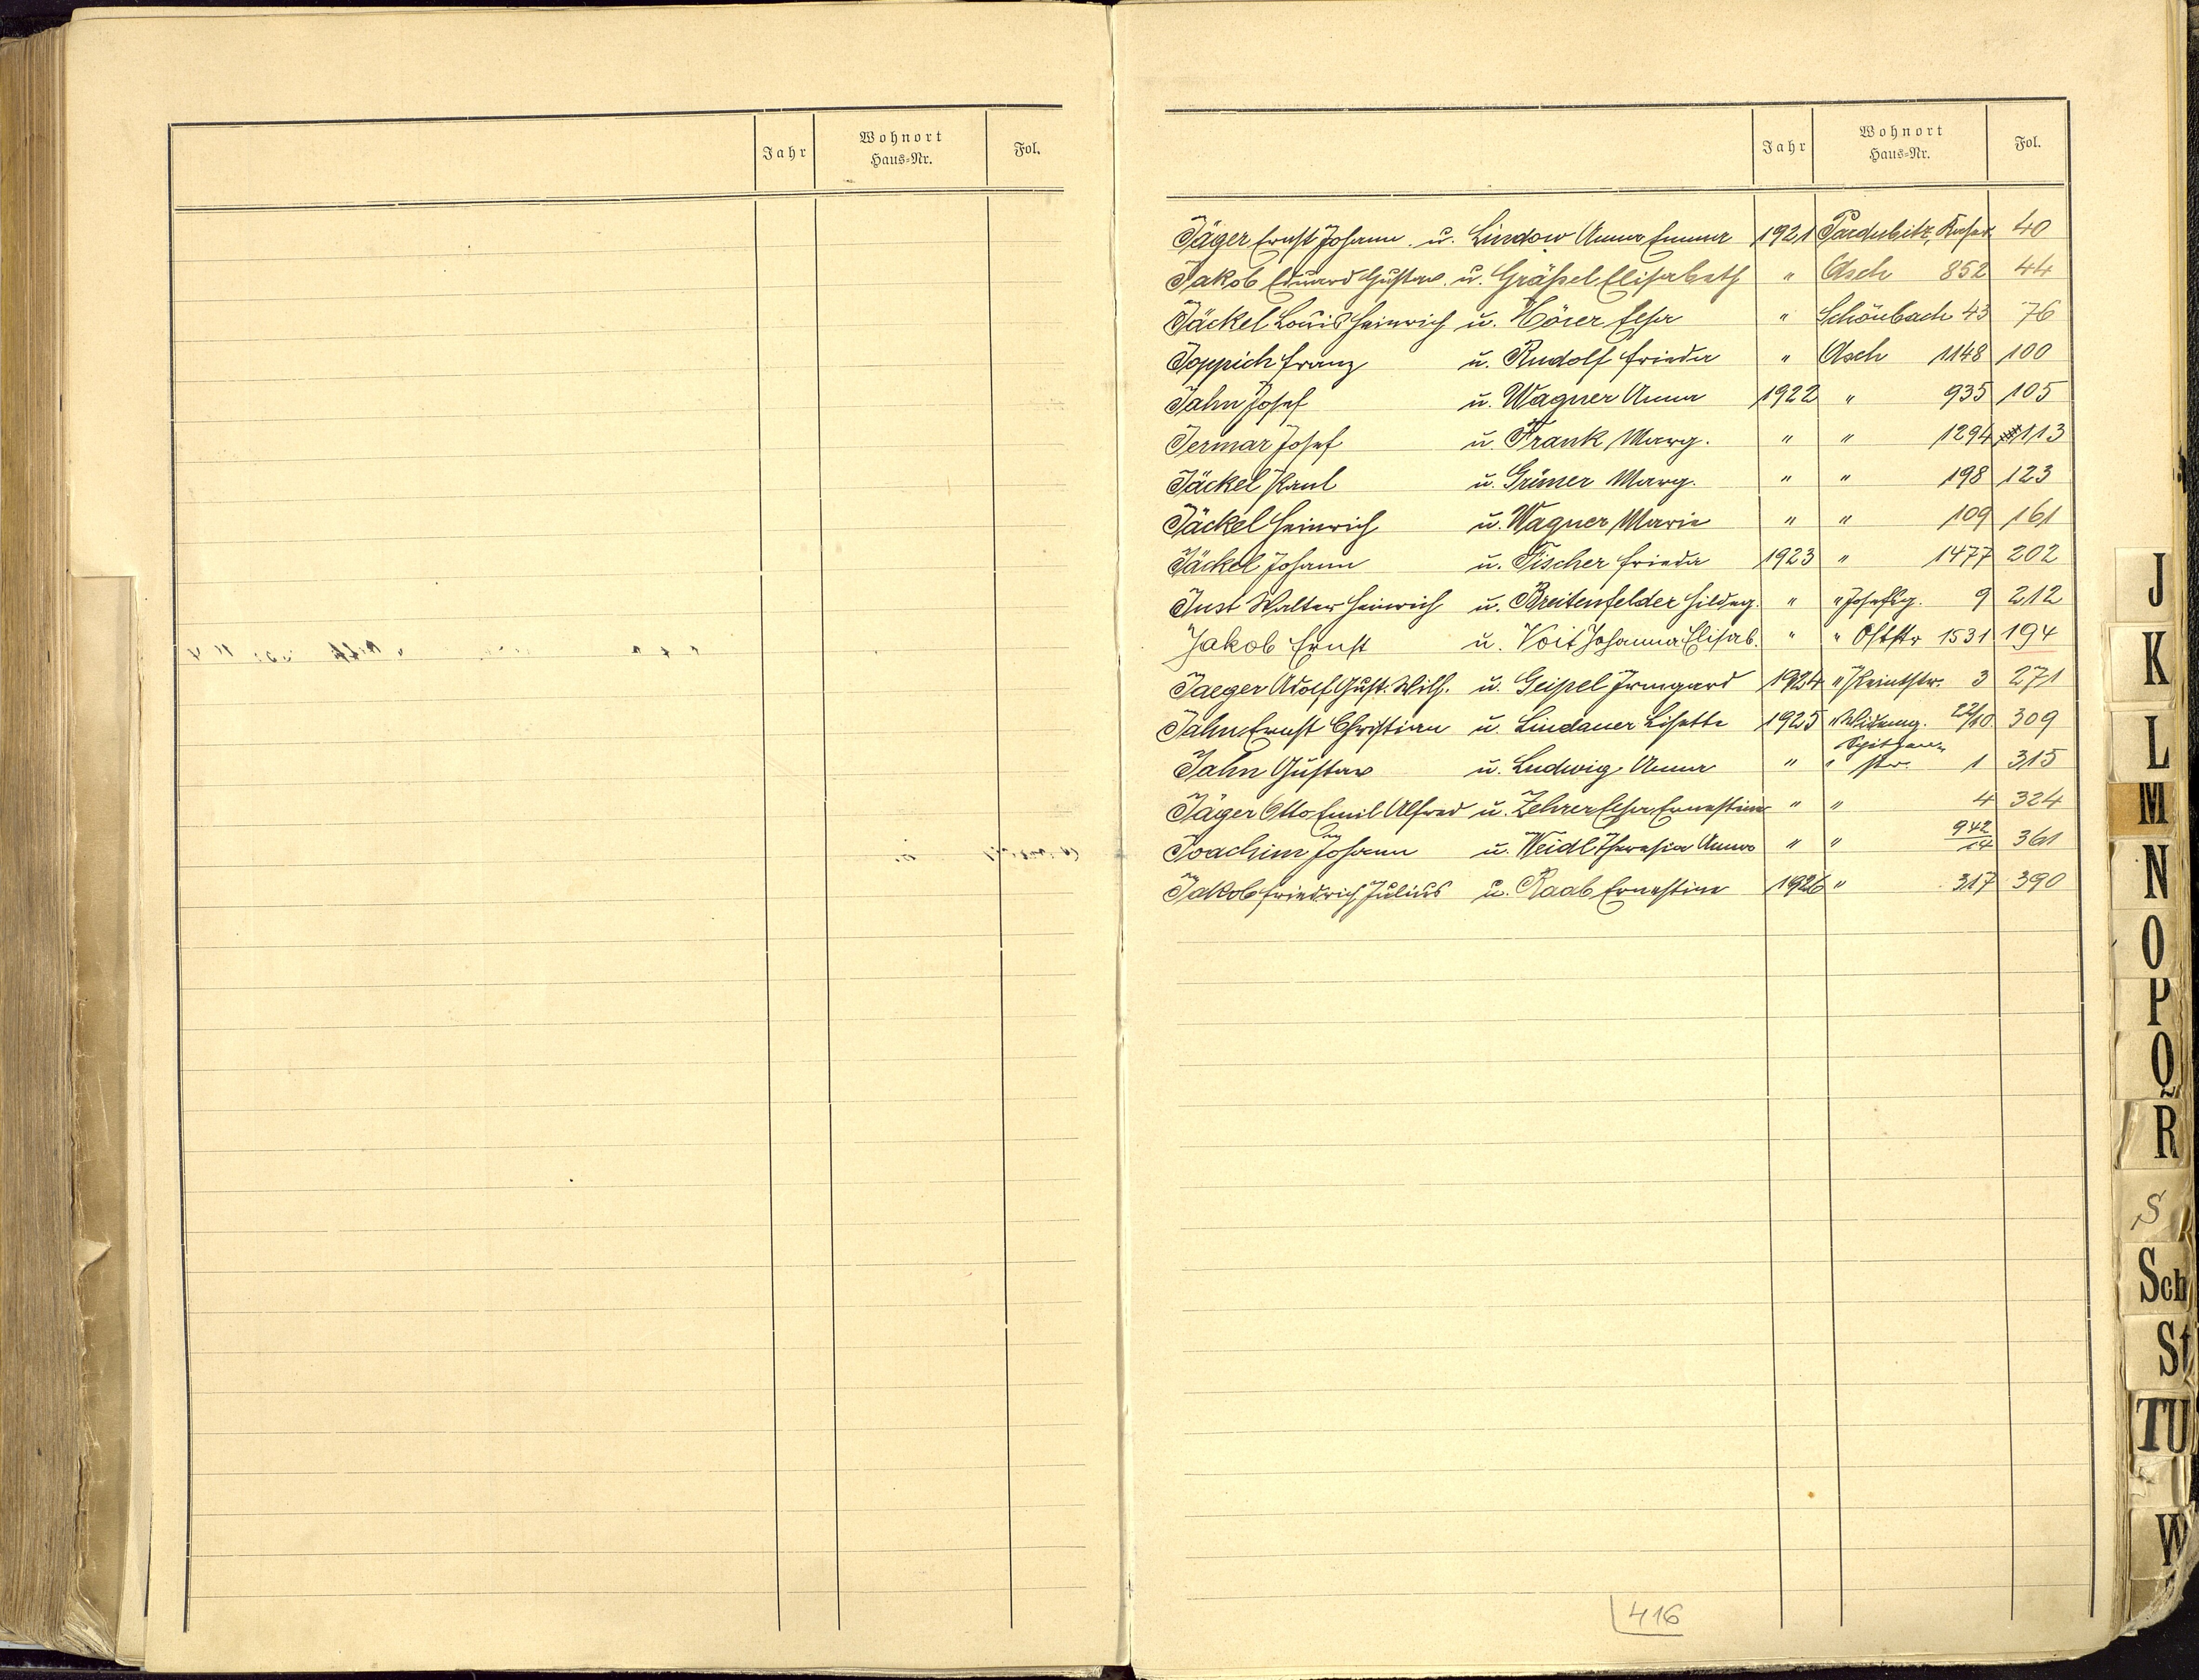 Jahr Wohnort Haus-Nr. Fol.
Jahr Wohnort Haus-Nr. Fol.
Jäger Ernst Johann u. Lindow Anna Emma 1921 Pardubitz, Kaser. 40
Jakob Eduard Gustav u. Gräßel Elisabeth " Asch 852 44
Jäckel Louis Heinrich u. Höver Elsa " Schönbach 43 76
Joppich Franz u. Rudolf Frieda " Asch 1148 100
Jahn Josef u. Wagner Anna 1922 " 935 105
Jermar Josef u. Frank Marg. " " 1294 113
Jäckel Karl u. Grüner Marg. " " 198 123
Jäckel Heinrich u. Wagner Marie " " 109 161
Jäckel Johann u. Fischer Frieda 1923 " 1477 202
Just Walter Heinrich u. Breitenfelder Hildeg. " " 9 212
Jakob Ernst u. Voit Johanna Elisab. " " Oststr 1531 194
Jaeger Adolf Gust. Wilh. u. Geipel Irmgard 1924 " 3 271
Jahn Ernst Christian u. Lindauer Lisette 1925 " 22/10. 309
Jahn Gustav u. Ludwig Anna " " str. 1 315
Jäger Otto Emil Alfred u. Zehrer Elsa Ernestine " " 4 324
Joachim Johann u. Weidl Theresia Anna " " 942/14 361
Jakob Friedrich Julius u. Raab Ernestine 1926 " 317 390
416
J
K
L
M
N
O
P
Q
R
S
Sch
St
TU
W